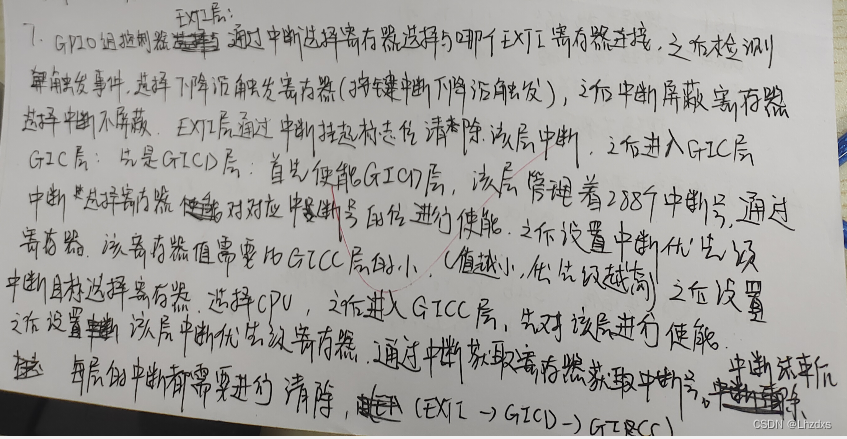 EXTI层:
7. GPIO组控制器 通过中断选择寄存器选择与哪个EXTI寄存器连接,之后检测
触发事件,选择下降沿触发寄存器(按键中断下降沿触发),之后中断屏蔽寄存器
选择中断不屏蔽. EXTI层通过中断挂起标志位清除该层中断.之后进入GIC层
GIC层:先是GICD层:首先使能GICD层,该层管理着288个中断号,通过
中断选择寄存器 对对应中断号的位进行使能.之后设置中断优先级
寄存器.该寄存器值需要比GICC层的小.(值越小,优先级越高)之后设置
中断目标选择寄存器.选择CPU,之后进入GICC层,先对该层进行使能.
之后设置 该层中断优先级寄存器.通过中断获取寄存器获取中断号。中断结束后
每层的中断都需要进行清除, (EXTI→GICD→GICC)
CSDN @Lhzdxs